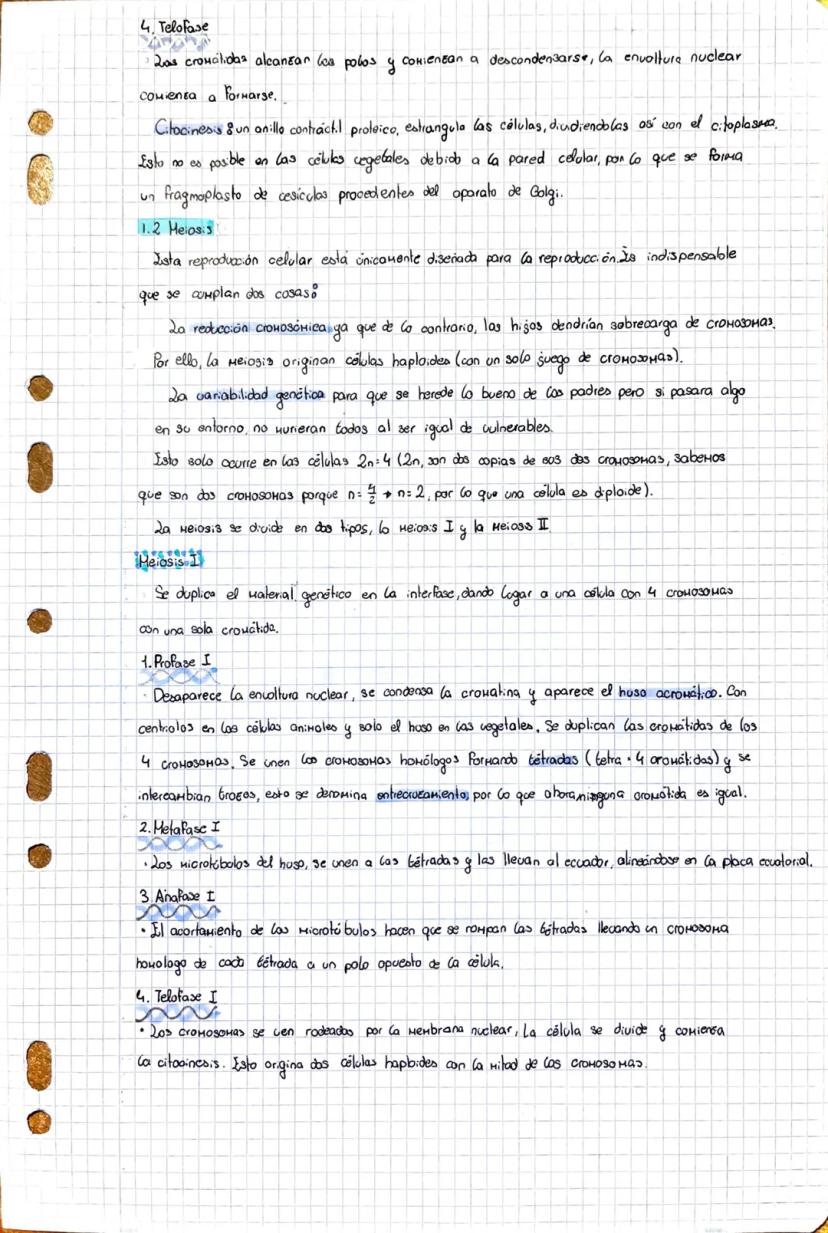 4. Telofase
· Las cromátidas alcanzan los polos y comienzan a descondensarse, la envoltura nuclear
comienza a formarse.
Citocinesis: un anillo contráctil proteico, estrangula las células, dividiendolas así con el citoplasma.
Esto no es posible en las células vegetales debido a la pared celular, por lo que se forma
un fragmoplasto de vesículas procedentes del aparato de Golgi.
1.2 Meiosis
Esta reproducción celular está únicamente diseñada para la reproducción. Es indispensable
que se cumplan dos cosas:
La reducción cromosómica, ya que de lo contrario, los hijos tendrían sobrecarga de cromosomas.
Por ello, la meiosis originan células haploides (con un solo juego de cromosomas).
La variabilidad genética para que se herede lo bueno de los padres pero si pasara algo
en su entorno, no murieran todos al ser igual de vulnerables.
Esto solo ocurre en las células 2n=4 (2n, son dos copias de sus dos cromosomas, sabemos
que son dos cromosomas porque n= 4/2 → n=2, por lo que una célula es diploide).
La meiosis se divide en dos tipos, la meiosis I y la meiosis II
Meiosis I
Se duplica el material genético en la interfase, dando lugar a una célula con 4 cromosomas
con una sola cromátida.
1. Profase I
· Desaparece la envoltura nuclear, se condensa la cromatina y aparece el huso acromático. Con
centriolos en las células animales y solo el huso en las vegetales. Se duplican las cromátidas de los
4 cromosomas. Se unen los cromosomas homólogos formando tétradas (tetra = 4 cromátidas) y se
intercambian trozos, esto se denomina entrecruzamiento, por lo que ahora ninguna cromátida es igual.
2. Metafase I
· Los microtúbulos del huso, se unen a las tétradas y las llevan al ecuador, alineándose en la placa ecuatorial.
3 Anafase I
· El acortamiento de los microtúbulos hacen que se rompan las tétradas llevando un cromosoma
homologo de cada tétrada a un polo opuesto de la célula.
4. Telofase I
· Los cromosomas se ven rodeados por la membrana nuclear, la célula se divide y comienza
la citocinesis. Esto origina dos células haploides con la mitad de los cromosomas.